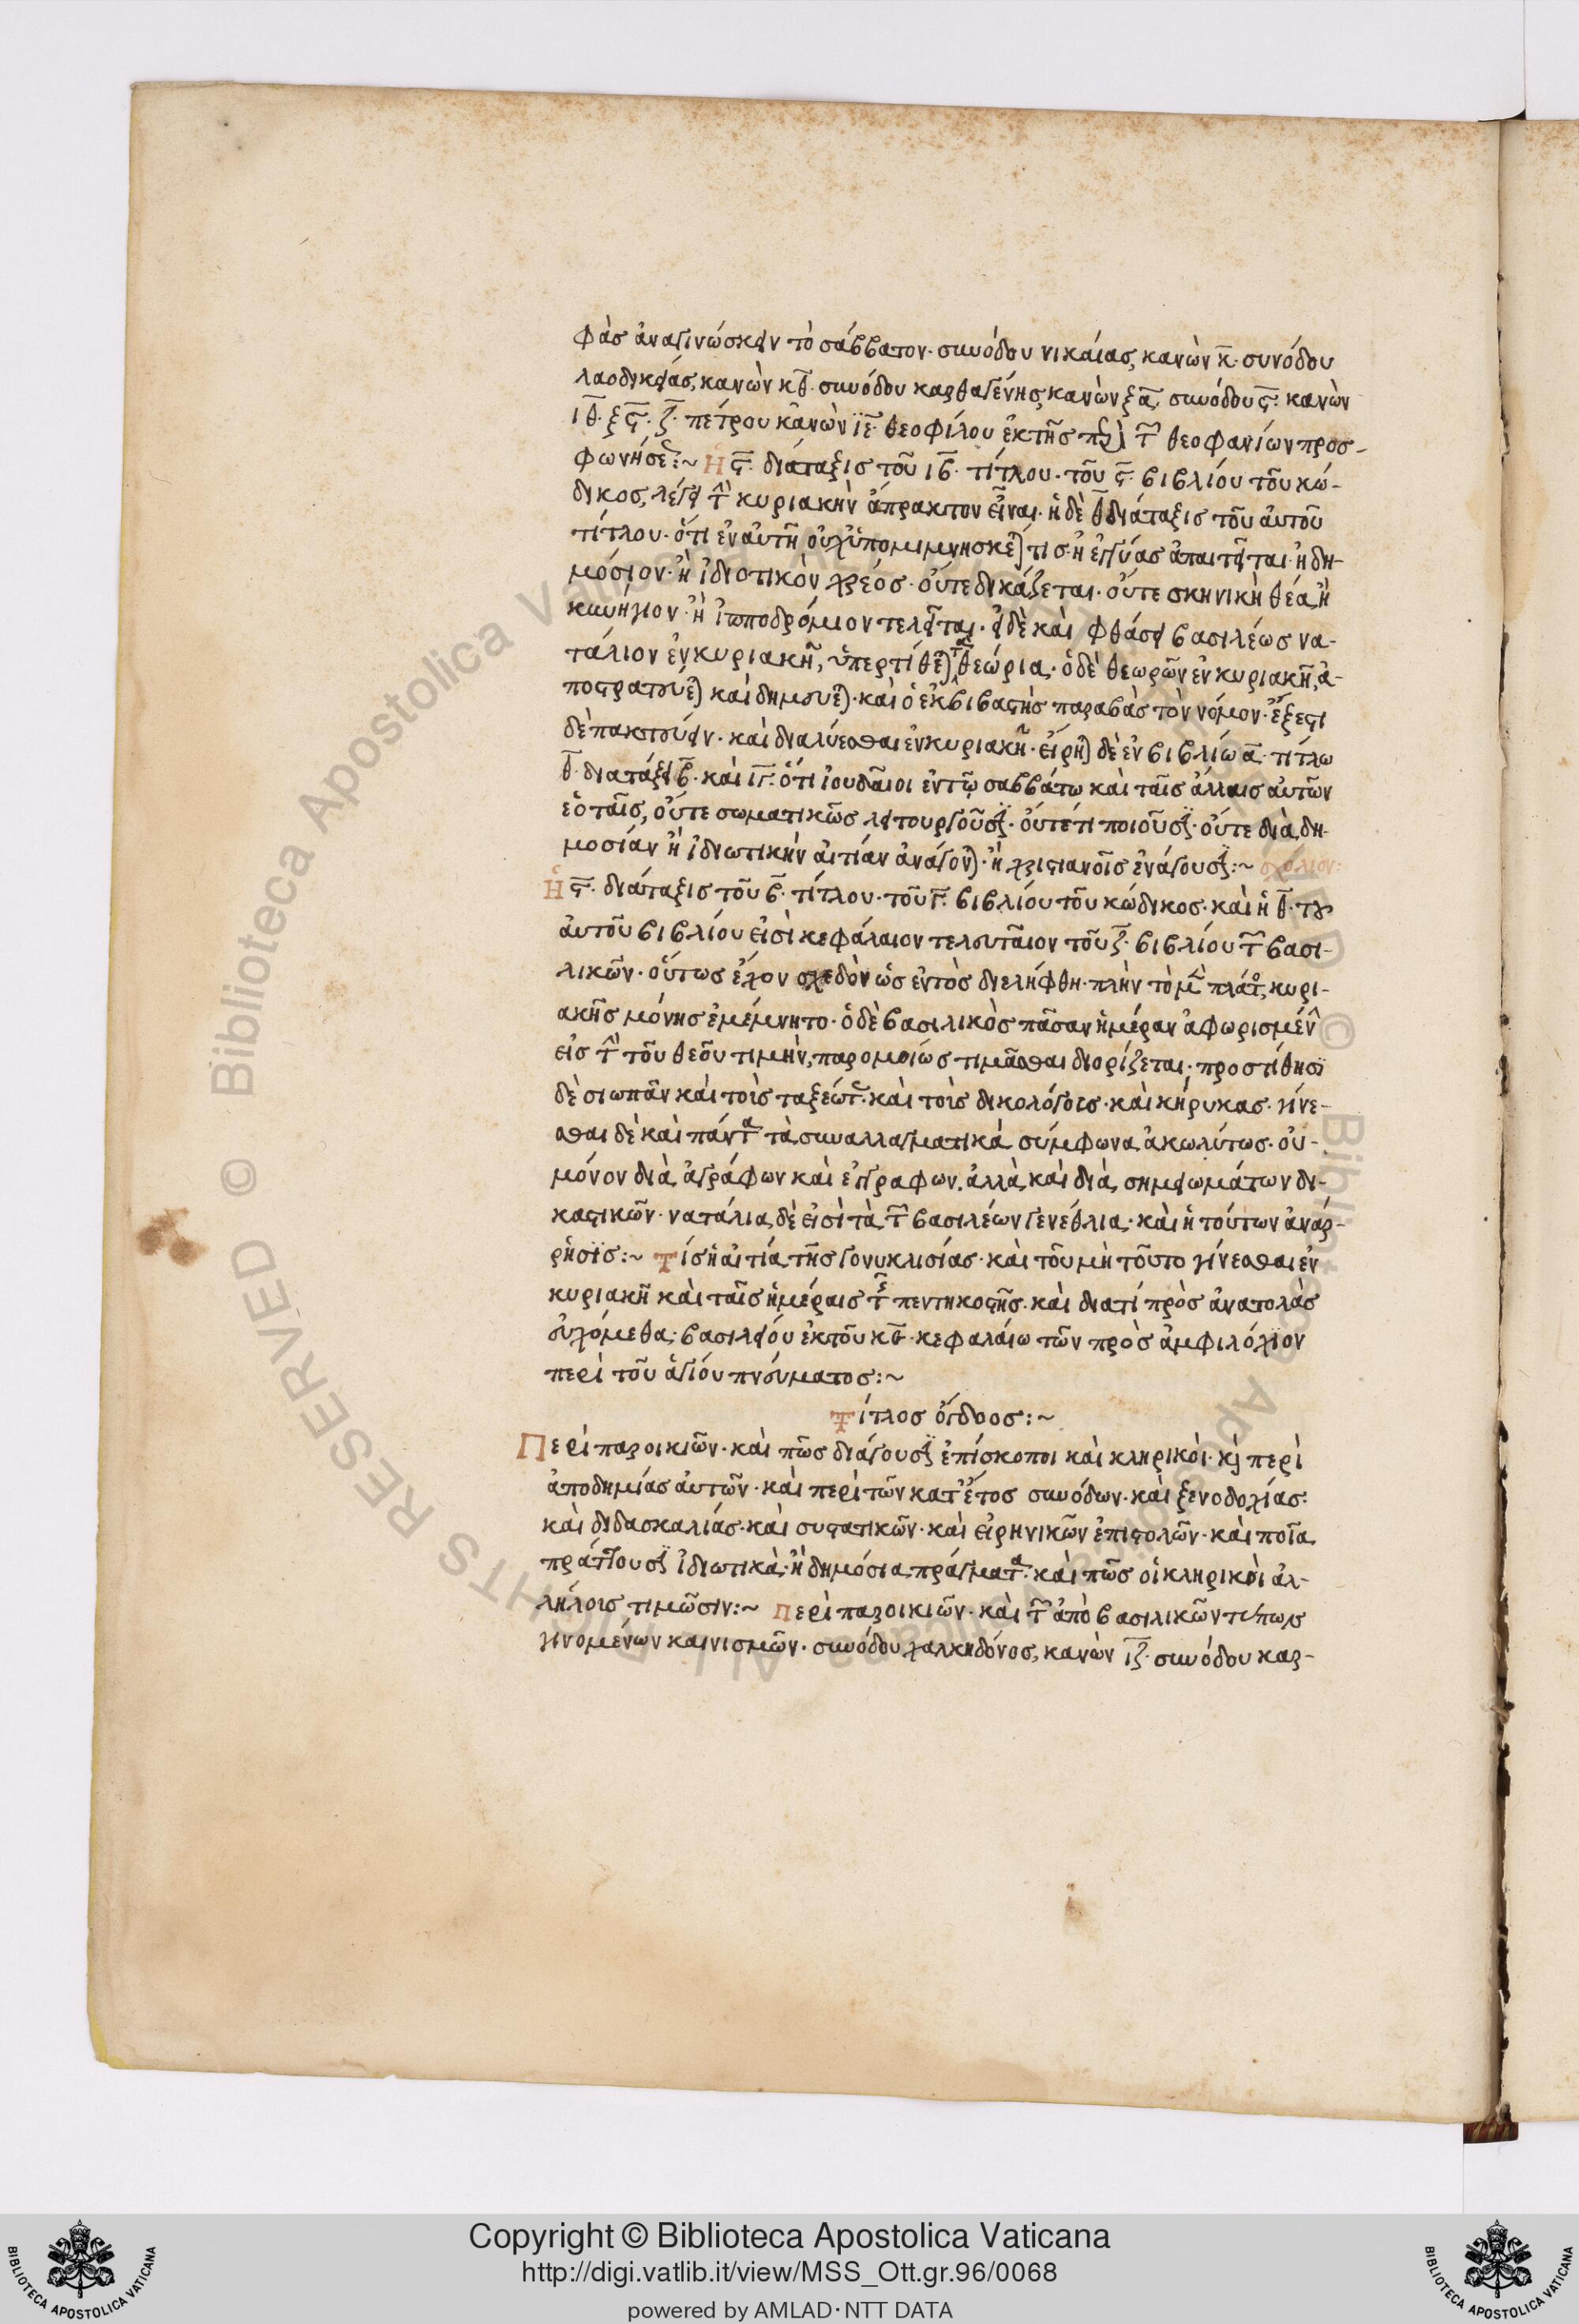 φὰσ ἀναγινώσκειν τὸ σάββατον· συνόδου νικαίας, κανὼν κ̅· συνόδου
λαοδικείας, κανὼν κθ̅· συνόδου καρθαγένης, κανὼν ξα̅· συνόδου ϛ̅· κανὼν
ιθ̅· ξϛ̅· ζ̅· πέτρου κανὼν ιε̅· θεοφίλου ἐκ τῆς περὶ τῶν θεοφανίων προσ-
φωνήσεως:~ Ἡ ϛ̅· διάταξις τοῦ ιβ̅· τίτλου· τοῦ ϛ̅· βιβλίου τοῦ κώ-
δικος, λέγει τὴν κυριακὴν ἄπρακτον εἶναι· ἡ δὲ θ̅ διάταξις τοῦ αὐτοῦ
τίτλου· ὅτι ἐν αὐτῆ οὐχ ὑπομιμνησκεται τις· ἢ ἐγγύας ἀπαιτεῖται· ἢ δη-
μόσιον· ἢ ἰδιοτικὸν χρέος· οὔτε δικάζεται· οὔτε σκηνικὴ θέα, ἢ
κυνήγιον· ἢ ἱπποδρόμιον τελεῖται· εἰ δὲ καὶ φθάσει βασιλέως να-
τάλιον ἐν κυριακῆ, ὑπερτίθεται ἡ θεώρια· ὁ δὲ θεωρῶν ἐν κυριακῆ, ἀ-
ποστρατεύεται καὶ δημεύεται· καὶ ὁ ἐκβιβαστὴς παραβὰς τὸν νόμον· ἔξεστι
δὲ πακτεύειν· καὶ διαλύεσθαι ἐν κυριακῆ· εἴρηται δὲ ἐν βιβλίω α̅· τίτλω
θ̅· διατάξει β̅· καὶ ιγ̅· ὅτι ἰουδαῖοι ἐν τῷ σαββάτω καὶ ταῖς ἄλλαις αὐτῶν
ἑορταῖς, οὔτε σωματικῶς λειτουργοῦσιν· οὔτε τι ποιοῦσιν· οὔτε διὰ δη-
μοσίαν ἢ ἰδιωτικὴν αἰτίαν ἀνάγονται· ἢ χριστιανοῖς ἐνάγουσιν:~ σχόλιον:
Ἡ ϛ̅· διάταξις τοῦ β̅· τίτλου· τοῦ γ̅· βιβλίου τοῦ κώδικος· καὶ ἡ θ̅· τοῦ
αὐτοῦ βιβλίου εἰσὶ κεφάλαιον τελευταῖον τοῦ ζ̅· βιβλίου τῶν βασι-
λικῶν· οὕτως ἔχον σχεδὸν ὡς ἐντὸς διελήφθη· πλὴν τὸ μὲν πλάτος, κυρι-
ακῆς μόνης ἐμέμνητο· ὁ δὲ βασιλικὸς πᾶσαν ἡμέραν ἀφωρισμένην
εἰς τὴν τοῦ θεοῦ τιμὴν, παρομοίως τιμᾶσθαι διορίζεται· προστίθησι
δὲ σιωπᾶν καὶ τοὶς ταξεώταις· καὶ τοὶς δικολόγοις· καὶ κήρυκας· γίνε-
σθαι δὲ καὶ πάντα τὰ συναλλαγματικὰ σύμφωνα ἀκωλύτως· οὐ-
μόνον διὰ ἀγράφων καὶ ἐγγραφων, ἀλλὰ καὶ διὰ σημειωμάτων δι-
καστικῶν· νατάλια δὲ εἰσὶ τὰ τῶν βασιλέων γενέθλια· καὶ ἡ τούτων ἀναρ-
ρήσϊς:~ Τίς ἡ αἰτία τῆς γονυκλισίας· καὶ τοῦ μὴ τοῦτο γίνεσθαι ἐν
κυριακῆ καὶ ταῖς ἡμέραις τῆς πεντηκοστῆς· καὶ διατί πρὸς ἀνατολὰς
εὐχόμεθα; βασιλείου ἐκ τοῦ κθ̅· κεφαλαίω τῶν πρὸς ἀμφιλόχϊον
περὶ τοῦ ἁγίου πνεύματος:~
Τίτλος ὄγδοος:~
Περὶ παροικιῶν· καὶ πῶς διάγουσιν ἐπίσκοποι καὶ κληρικοὶ· κὶ περὶ
ἀποδημίας αὐτῶν· καὶ περὶ τῶν κατ' ἔτος συνόδων· καὶ ξενοδοχίας·
καὶ διδασκαλίας· καὶ συστατικῶν· καὶ εἰρηνικῶν ἐπιστολῶν· καὶ ποῖα
πράττουσιν ἰδιωτικὰ· ἢ δημόσια πράγματα· καὶ πῶς οἱ κληρικοὶ ἀλ-
λήλοις τιμῶσιν:~ Περὶ παροικιῶν· καὶ τῶν ἀπὸ βασιλικῶν τύπων
γινομένων καινισμῶν· συνόδου χαλκηδόνος, κανὼν ιζ̅· συνόδου καρ-
Copyright © Biblioteca Apostolica Vaticana
http://digi.vatlib.it/view/MSS_Ott.gr.96/0068
powered by AMLAD·NTT DATA